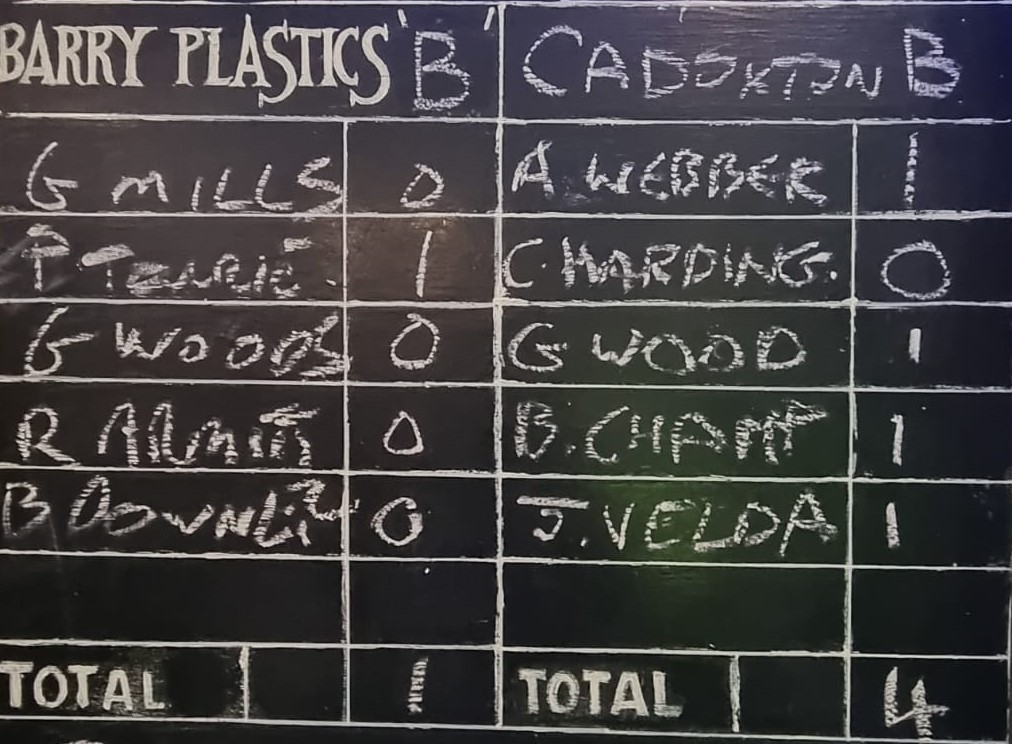 BARRY PLASTICS 'B' CADOXTON B
G MILLS 0 A WEBBER 1
P 1 C. HARDING. 0
G WOODS 0 G WOOD 1
R 0 B. CHAMP 1
B 0 J. VELDA 1
TOTAL 1 TOTAL 4